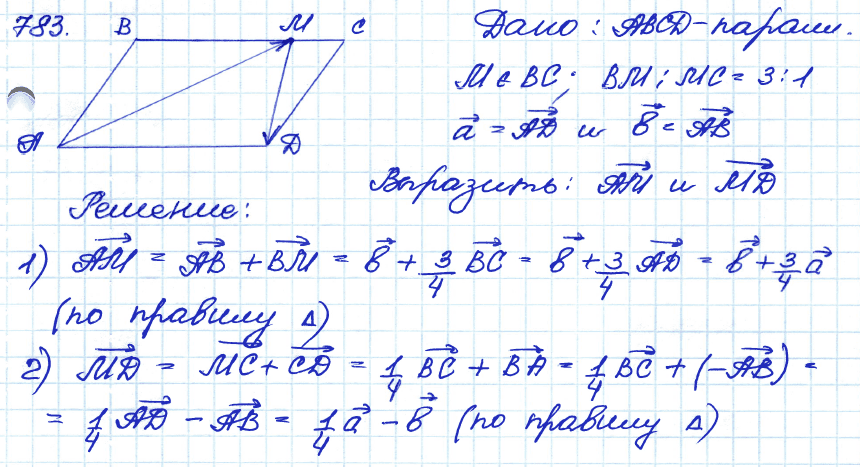 783. B M C Дано : ABCD-парал.
M ∈ BC. BM : MC = 3 : 1
A D a⃗ = AD⃗ и b⃗ = AB⃗
Выразить: AM⃗ и MD⃗
Решение:
1) AM⃗ = AB⃗ + BM⃗ = b⃗ + 3/4 BC⃗ = b⃗ + 3/4 AD⃗ = b⃗ + 3/4 a⃗
(по правилу Δ)
2) MD⃗ = MC⃗ + CD⃗ = 1/4 BC⃗ + BA⃗ = 1/4 BC⃗ + (-AB⃗) =
= 1/4 AD⃗ - AB⃗ = 1/4 a⃗ - b⃗ (по правилу Δ)